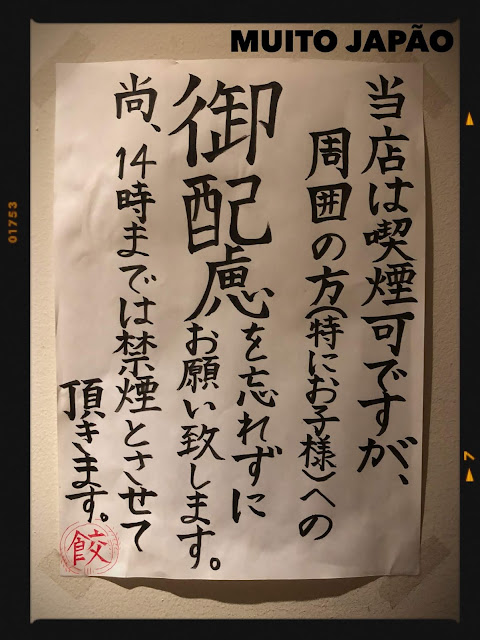 MUITO JAPÃO
当店は喫煙可ですが、
周囲の方(特にお子様)への
御配慮を忘れずに
お願い致します。
尚、14時までは禁煙とさせて
頂きます。
餃
01753
7